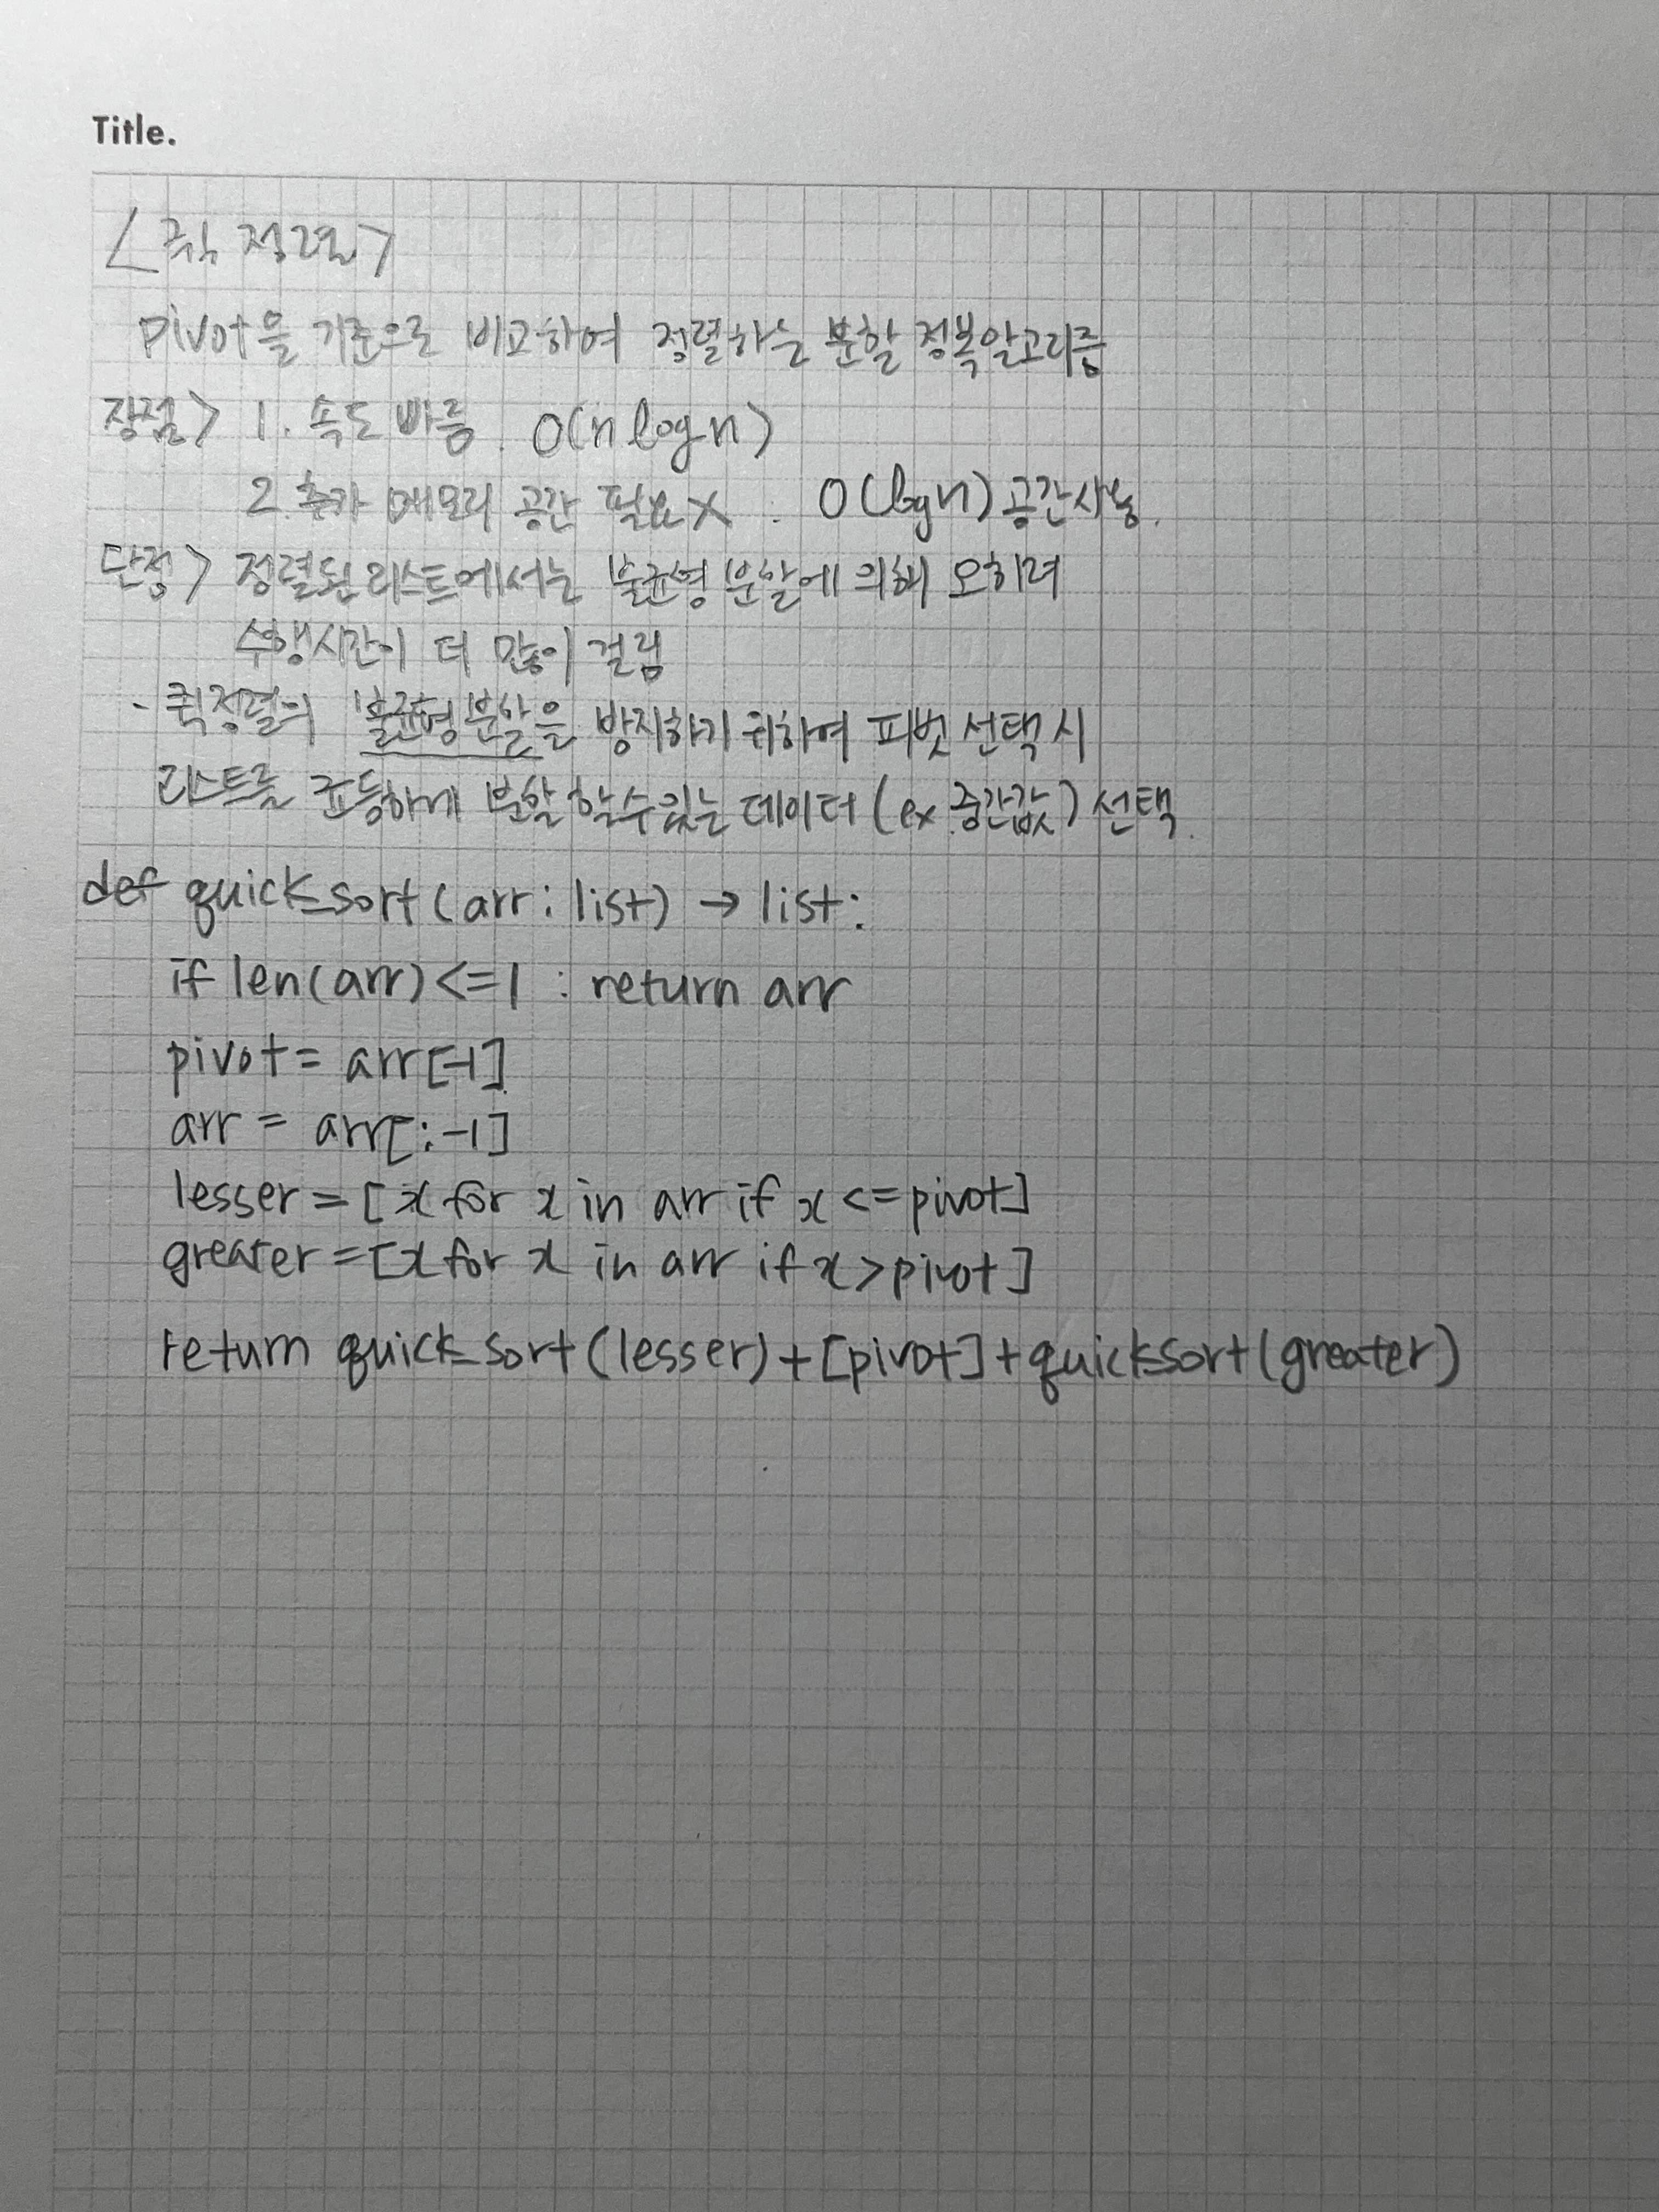 Title.
<퀵 정렬>
pivot을 기준으로 비교하여 정렬하는 분할 정복 알고리즘
장점> 1. 속도 빠름. O(n log n)
2. 추가 메모리 공간 필요X. O(log n) 공간사용.
단점> 정렬된 리스트에서는 불균형 분할에 의해 오히려
수행시간이 더 많이 걸림
- 퀵정렬의 불균형 분할을 방지하기 위하여 피벗 선택 시
리스트를 균등하게 분할 할 수 있는 데이터 (ex. 중간값) 선택.
def quick_sort(arr: list) → list:
if len(arr) <= 1 : return arr
pivot = arr[-1]
arr = arr[:-1]
lesser = [x for x in arr if x <= pivot]
greater = [x for x in arr if x > pivot]
return quick_sort(lesser) + [pivot] + quick_sort(greater)